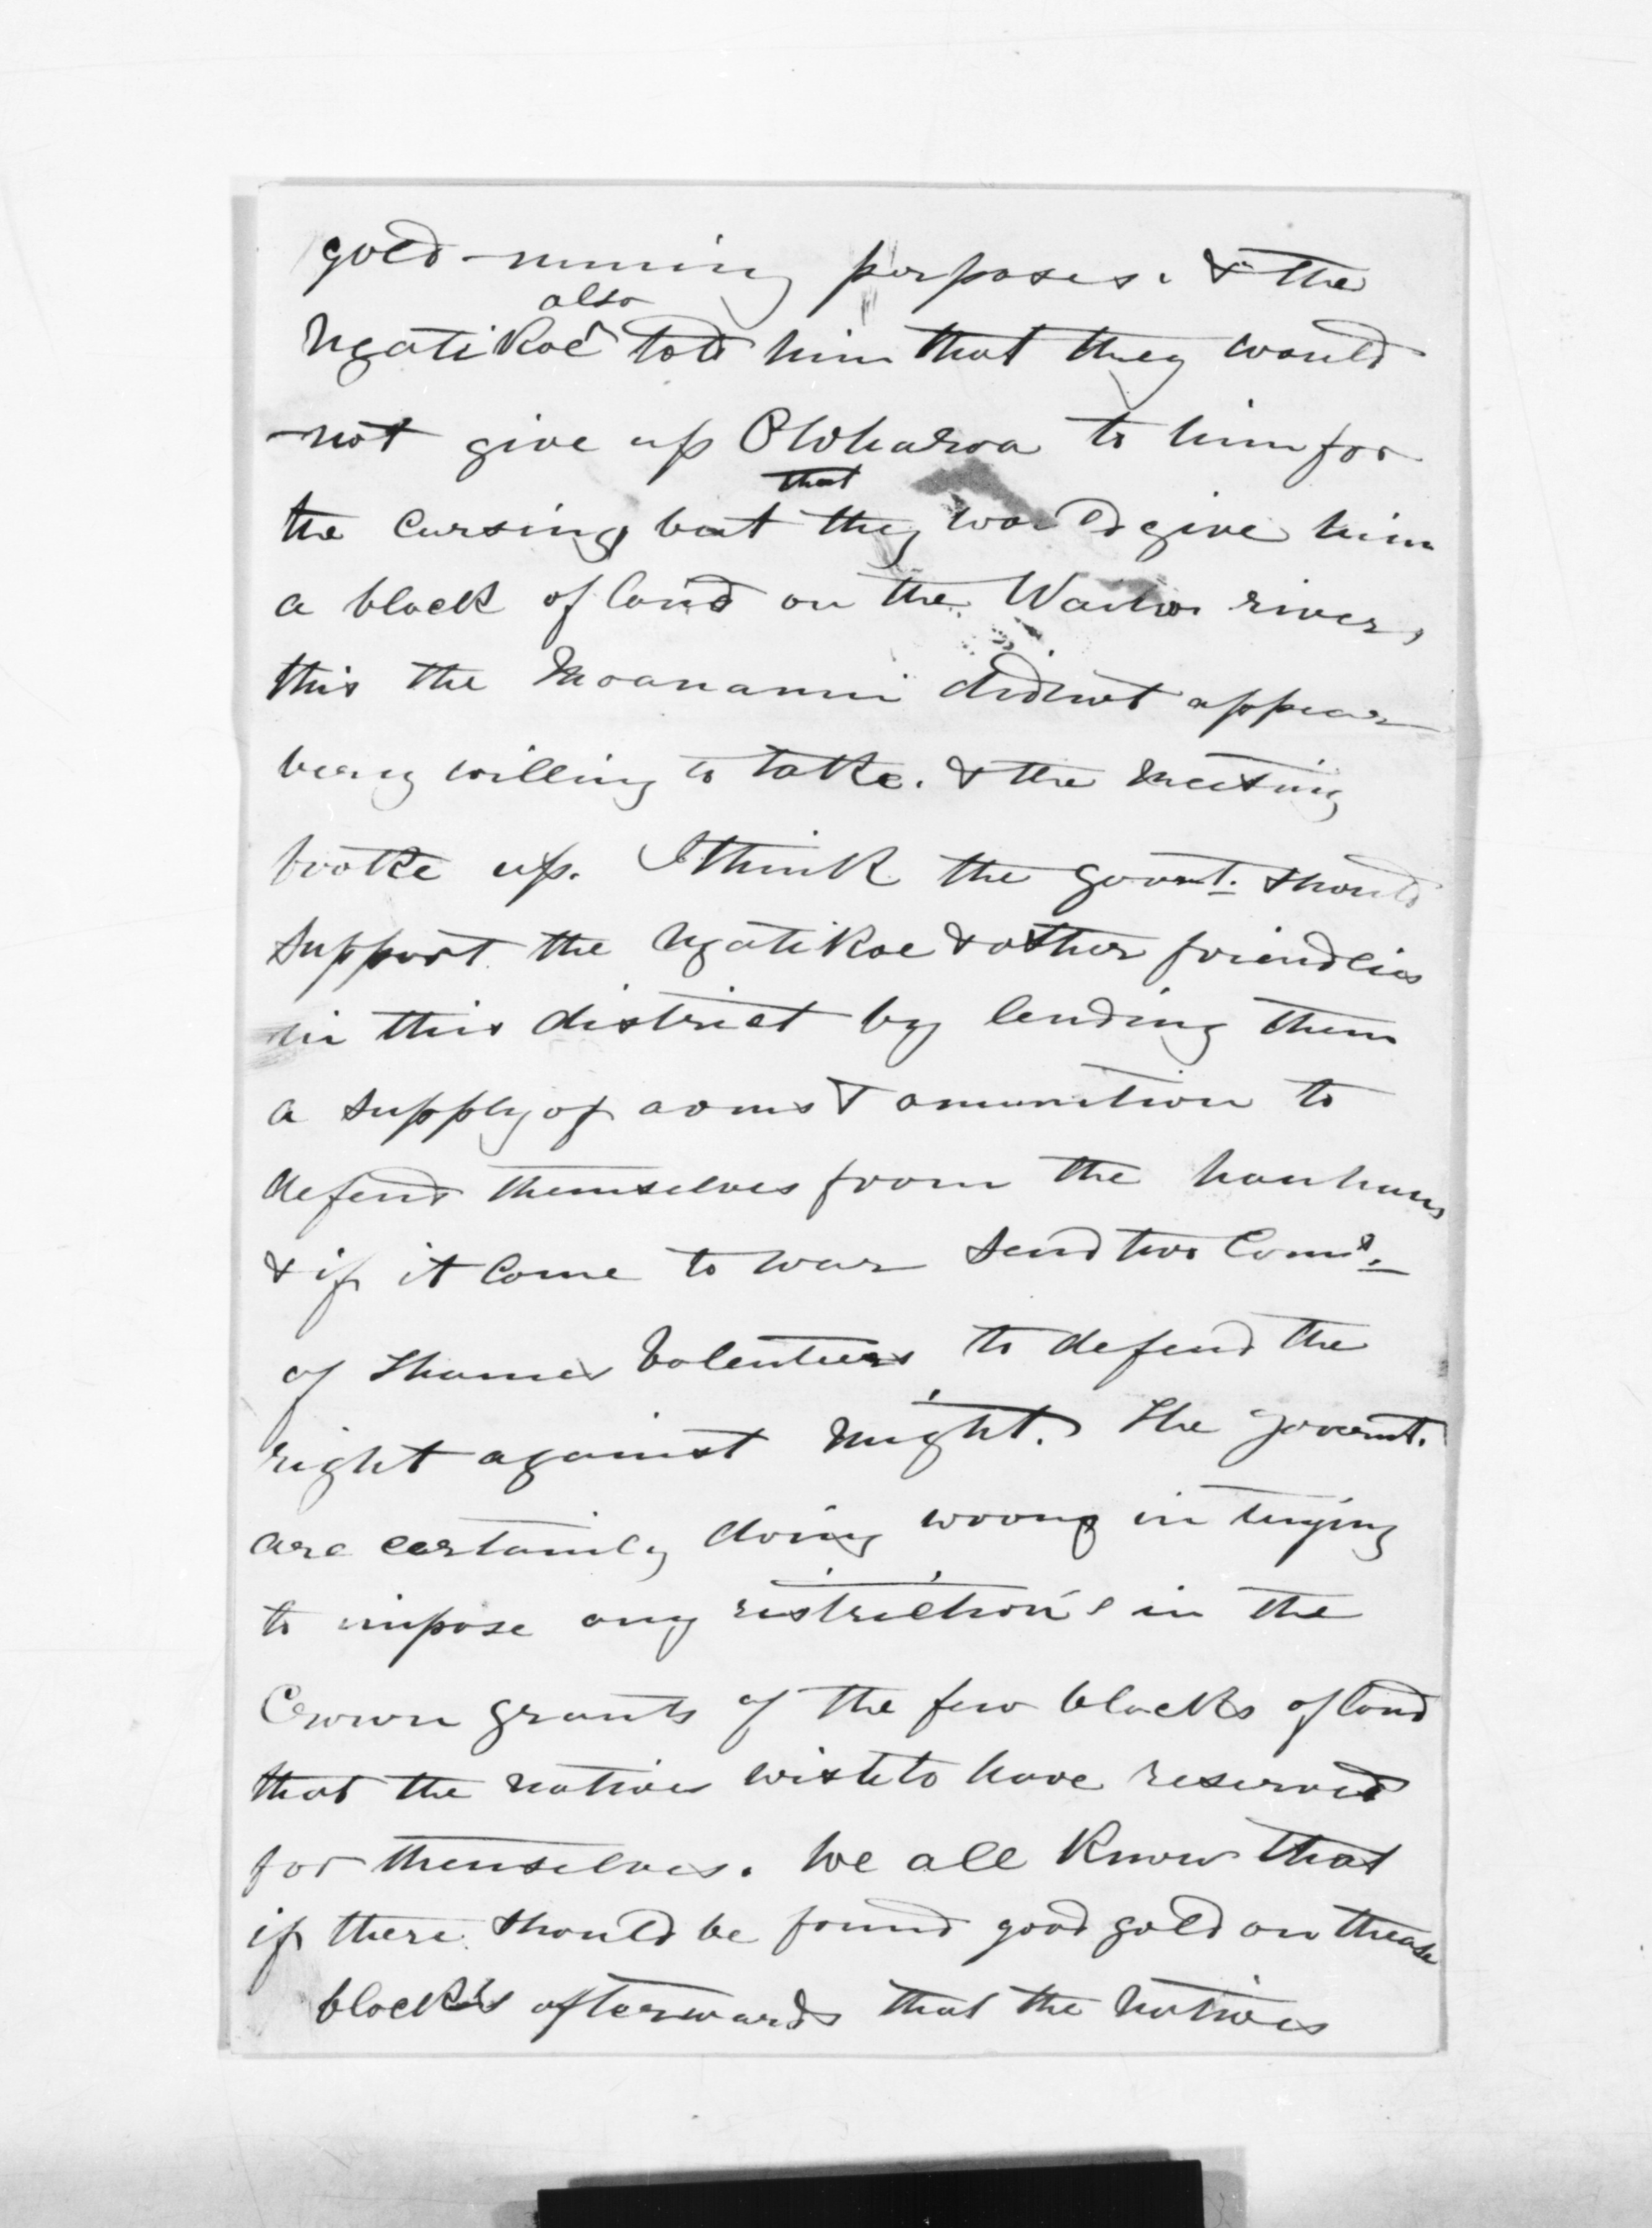 gold-mining perposes. & the
Ngatikoe also told him that they would
not give up Owharoa to him for
the cursing, but that they would give him
a block of land on the Waihou river,
this the Moananui did not appear
very willing to take. & the meeting
broke up. I think the govrnt. should
support the Ngatikoe & other friendlies
in this district by lending them
a supply of arms & amunition to
defend themselves from the hauhaus
& if it come to war send two Coms.
of Thames Volenteers to defend the
right against might. The goverment.
are certainly doing wrong in trying
to impose any ristrictions in the
Crown grants of the few blocks of land
that the natives wish to have reserved
for themselves. We all know that
if there should be found good gold on these
blocks afterwards that the natives